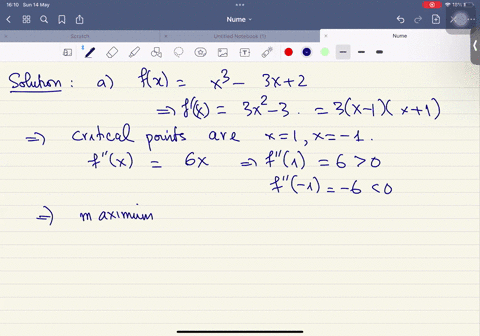 16:10 Sun 14 May
18%
Nume
Scratch
Untitled Notebook (1)
Nume
Solution : a) f(x) = x³ - 3x+2
⇒ f'(x) = 3x² - 3 . = 3(x-1)(x+1)
⇒ critical points are x=1, x=-1.
f''(x) = 6x ⇒ f''(1) = 6 > 0
f''(-1) = -6 < 0
⇒ maximum